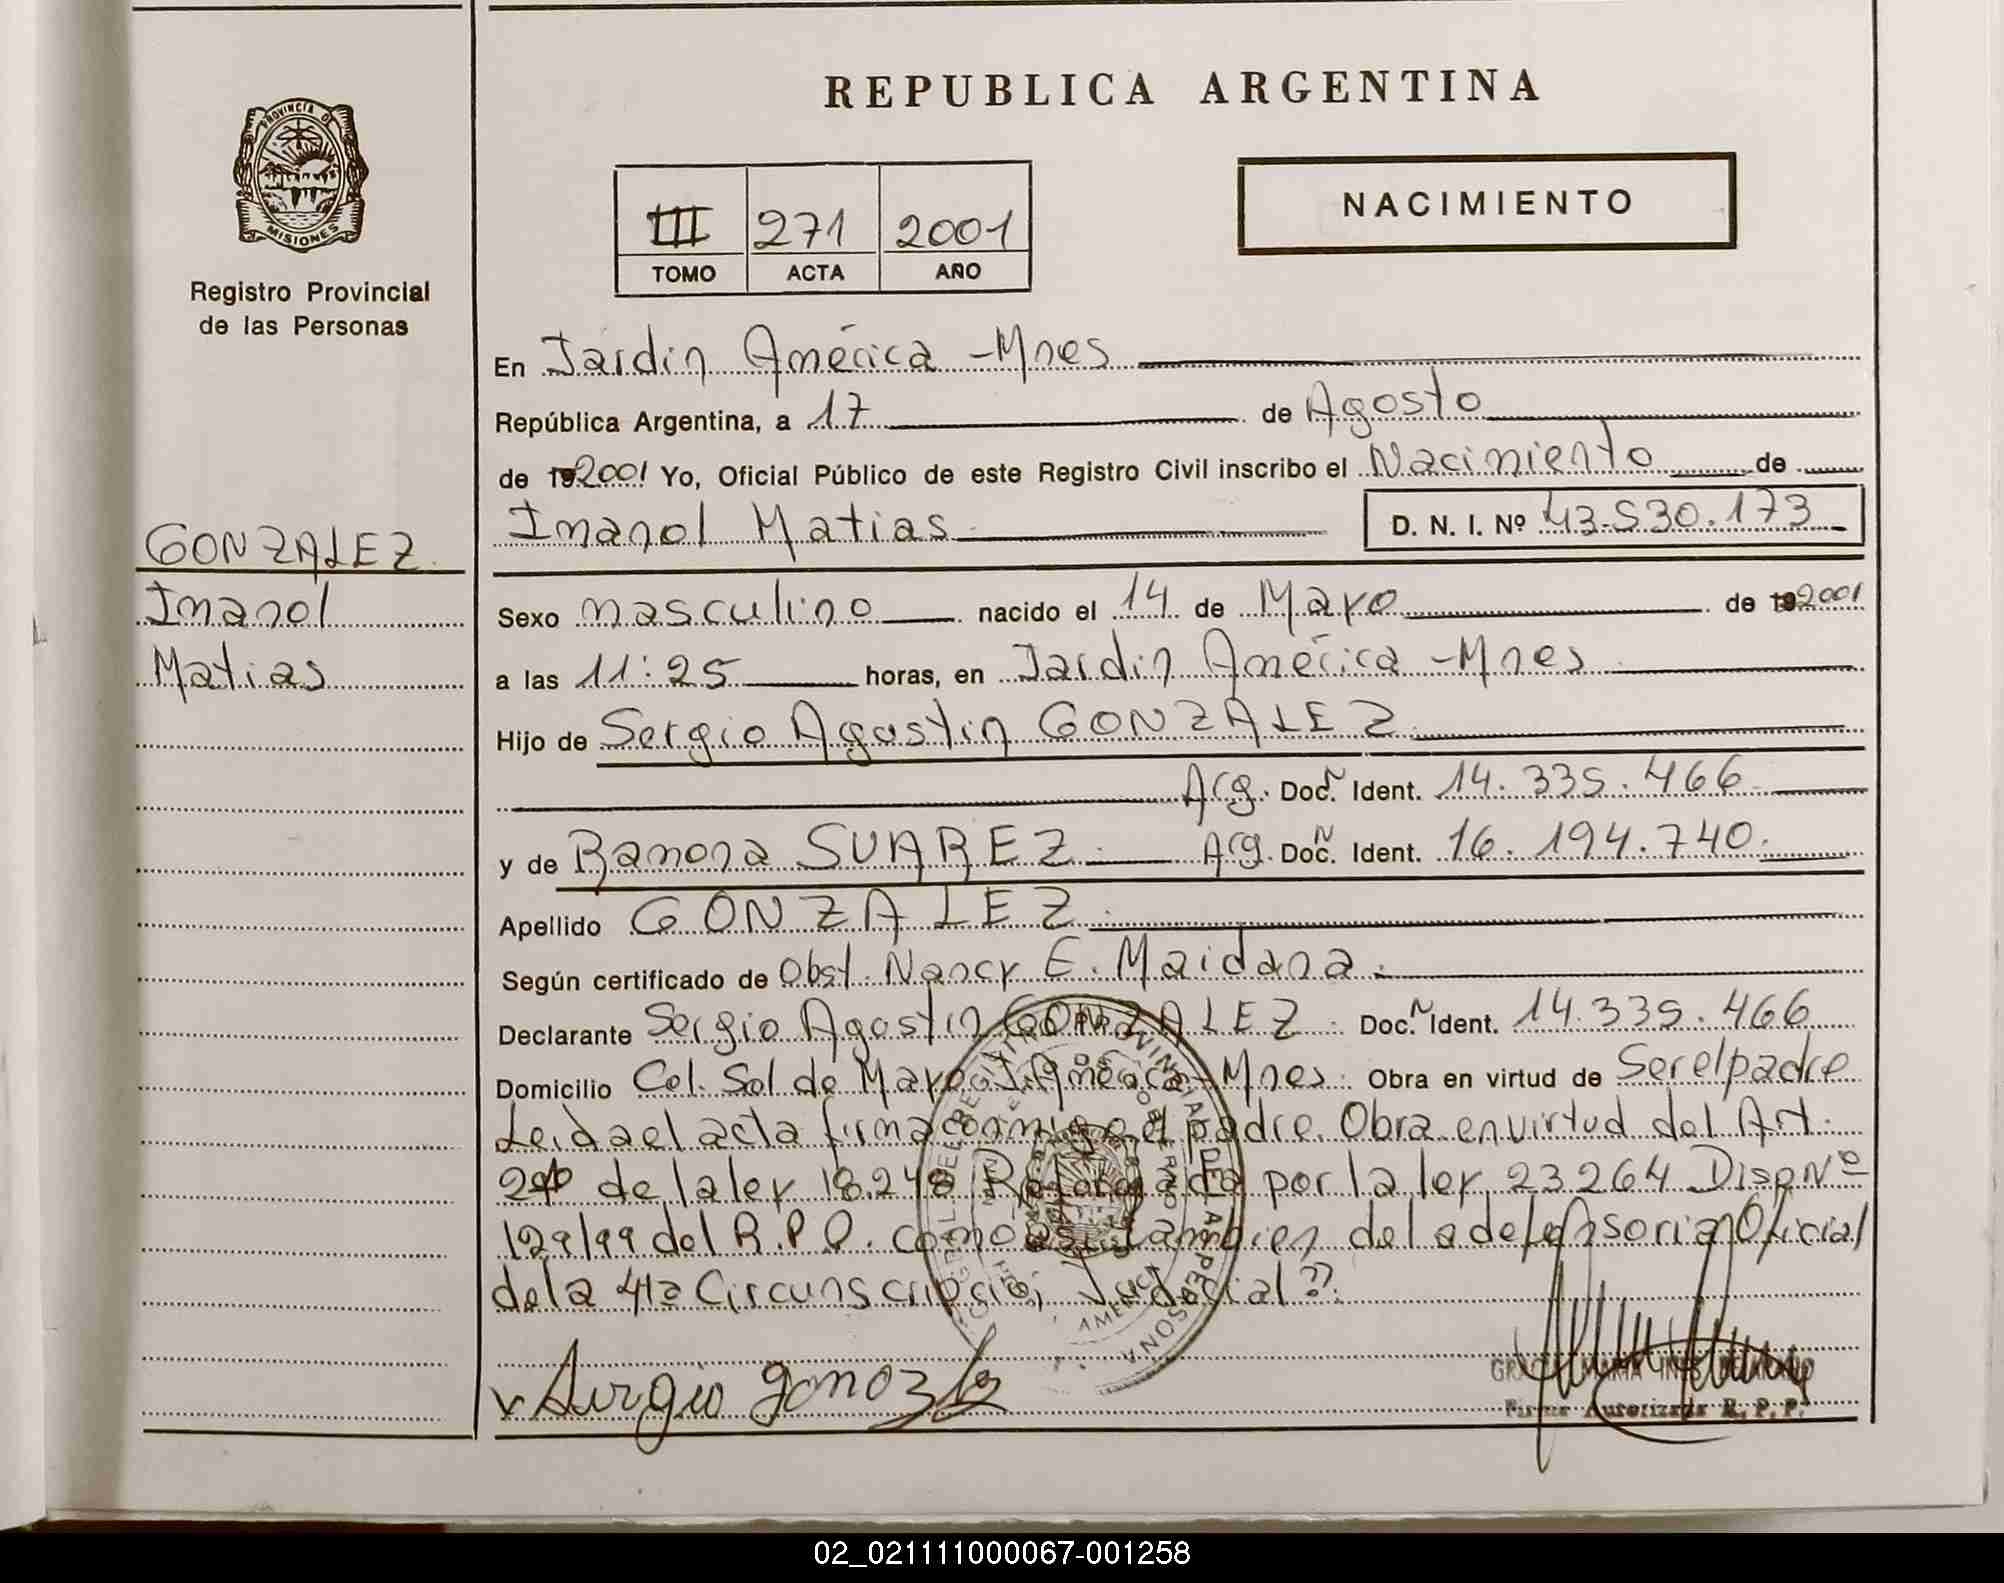 REPUBLICA ARGENTINA
PROVINCIA DE
MISIONES
Registro Provincial
de las Personas
III 271 2001
TOMO ACTA AÑO
NACIMIENTO
En Jardin América - Mnes
República Argentina, a 17 de Agosto
de 192001 Yo, Oficial Público de este Registro Civil inscribo el Nacimiento de
Imanol Matias D. N. I. Nº 43.530.173
GONZALEZ
Imanol
Matias
Sexo masculino nacido el 14 de Mayo de 192001
a las 11:25 horas, en Jardin América - Mnes
Hijo de Sergio Agostin GONZALEZ
Arg. Doc. N Ident. 14.335.466
y de Ramona SUAREZ Arg. Doc. N Ident. 16.194.740
Apellido GONZALEZ
Según certificado de Obst. Nancy E. Maidana
Declarante Sergio Agostin GONZALEZ Doc. N Ident. 14.335.466
Domicilio Col. Sol de Mayo J. América - Mnes Obra en virtud de Ser el padre
Leida el acta firma conmigo el padre. Obra en virtud del Art.
de la ley 18.248 por la ley 23264 Disp Nº
129/99 del R.P.P. como asi tambien de la defensoria Oficial
de la 4ta Circunscripció Judicial"
Sergio gonozlez
Firma Autorizada R. P. P.
02_021111000067-001258